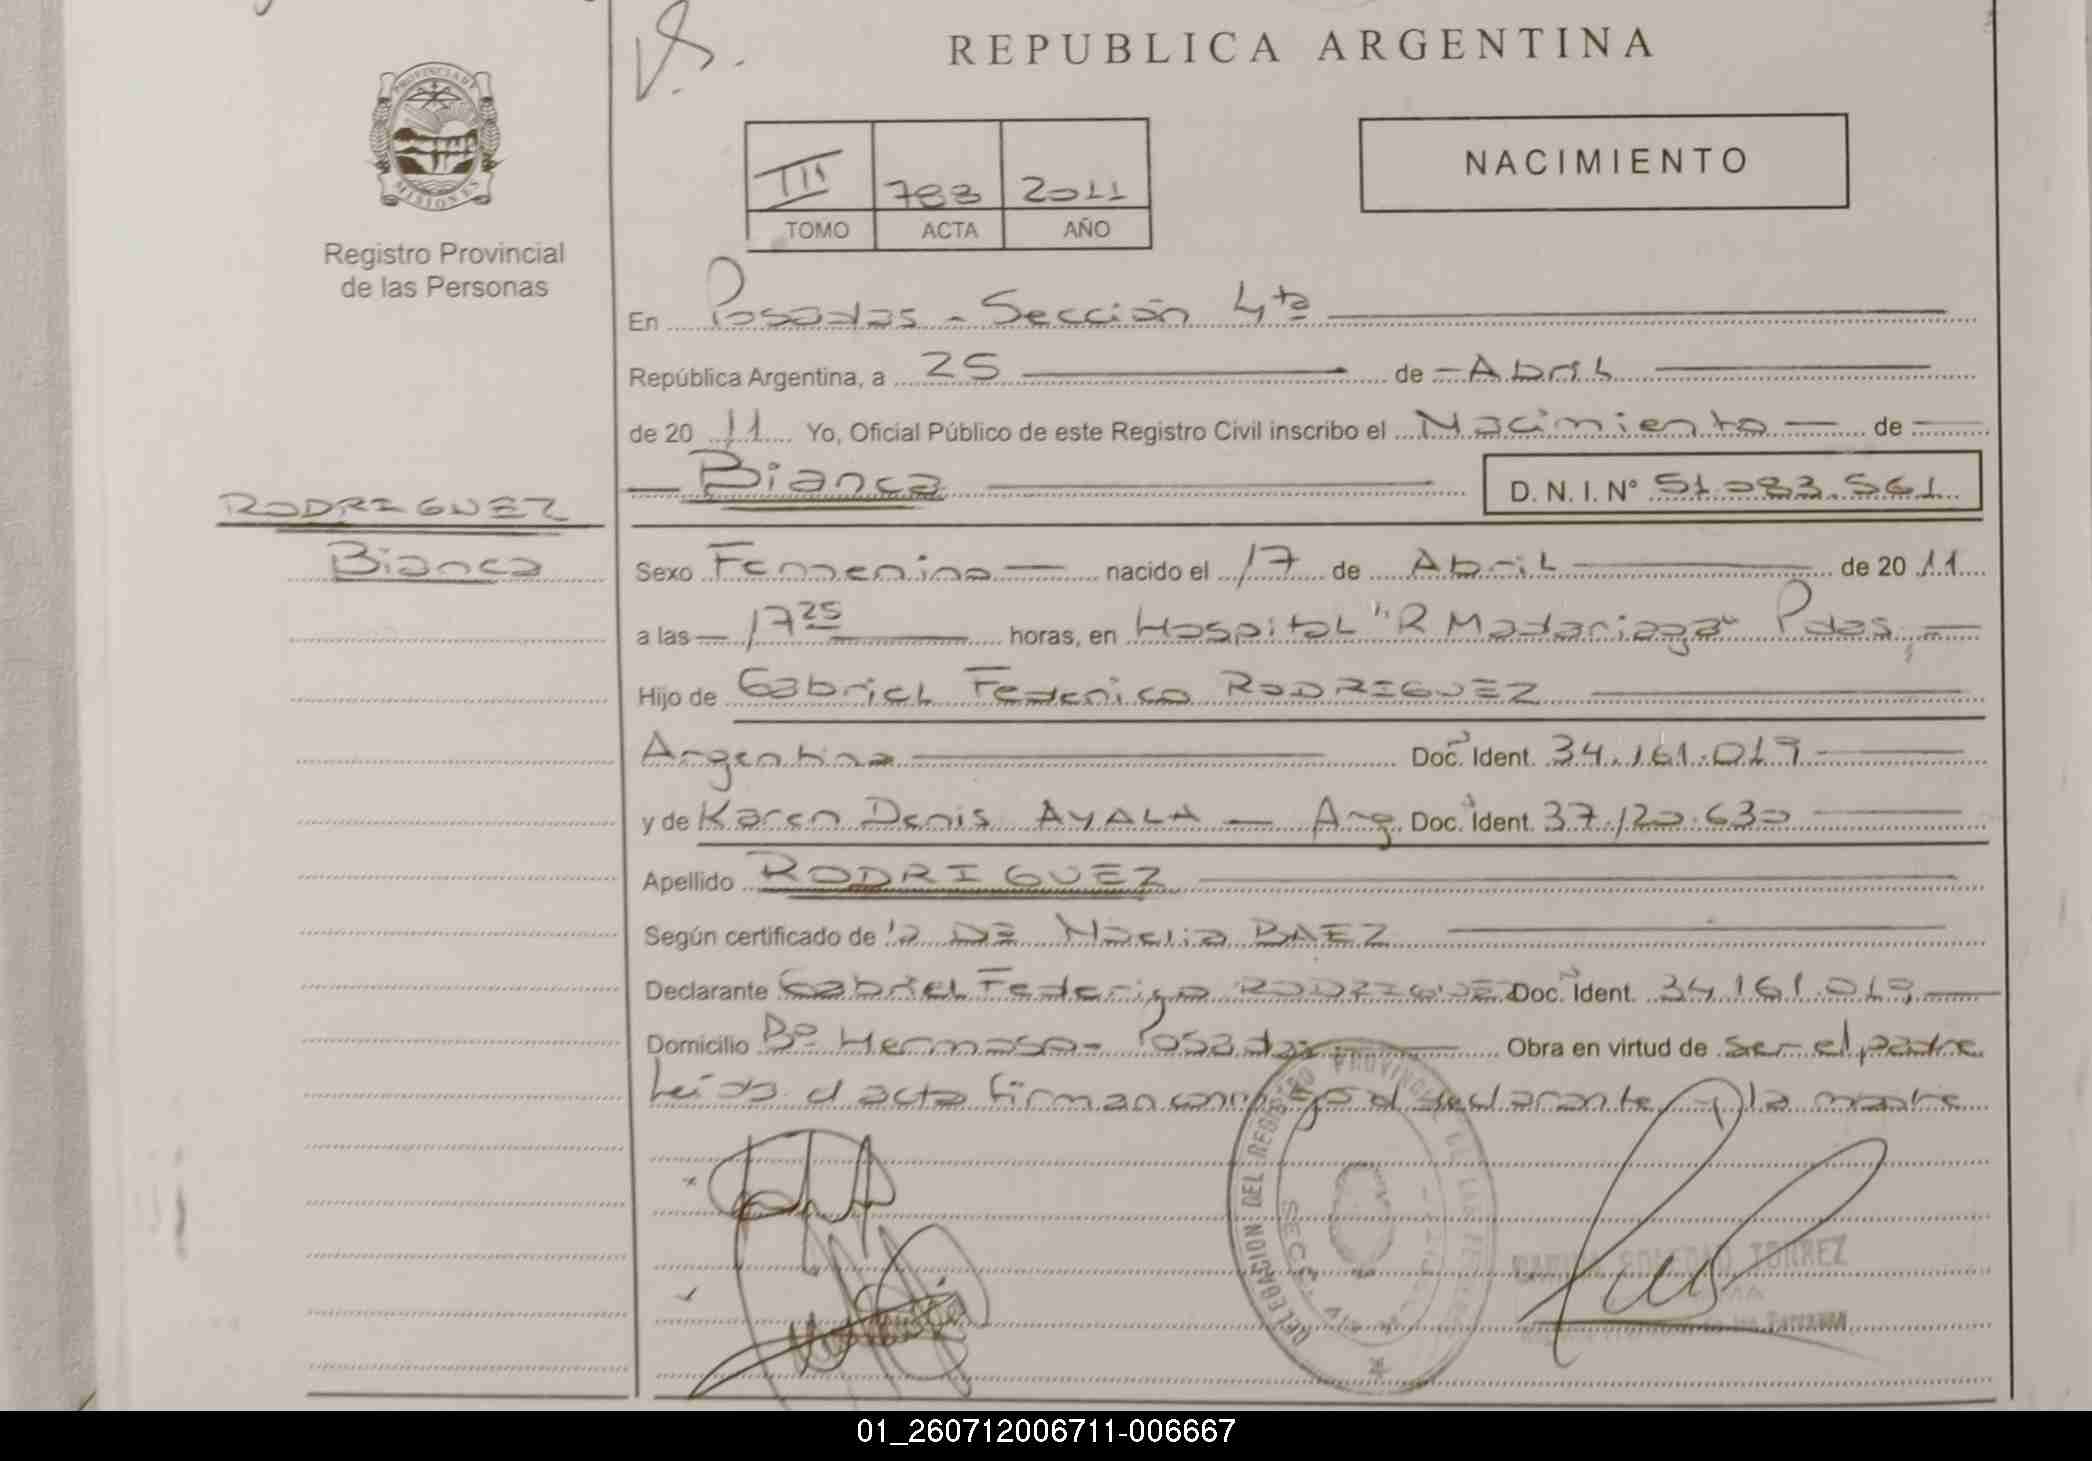 REPUBLICA ARGENTINA
PROVINCIA DE
MISIONES
Registro Provincial
de las Personas
NACIMIENTO
III 783 2011
TOMO ACTA AÑO
En Posadas - Sección 4ta
República Argentina, a 25 de Abril
de 20 11 Yo, Oficial Público de este Registro Civil inscribo el Nacimiento de
Bianca D. N. I. N° 51.083.561
RODRIGUEZ
Bianca
Sexo Femenino nacido el 17 de Abril de 20 11
a las 17 25 horas, en Hospital "R Madariaga" Pdas,
Hijo de Gabriel Federico RODRIGUEZ
Argentina Doc. Ident. 34.161.019
y de Karen Denis AYALA - Arg. Doc. Ident. 37.120.630
Apellido RODRIGUEZ
Según certificado de BAEZ
Declarante Gabriel Federico RODRIGUEZ Doc. Ident. 34.161.019
Domicilio B° Hermoso - Posadas Obra en virtud de ser el padre
Leída el acta firman conmigo el declarante y la madre
DELEGACION DEL REGISTRO PROVINCIAL DE LAS PERSONAS
SECC. 4ta
SOLEDAD TORREZ
01_260712006711-006667